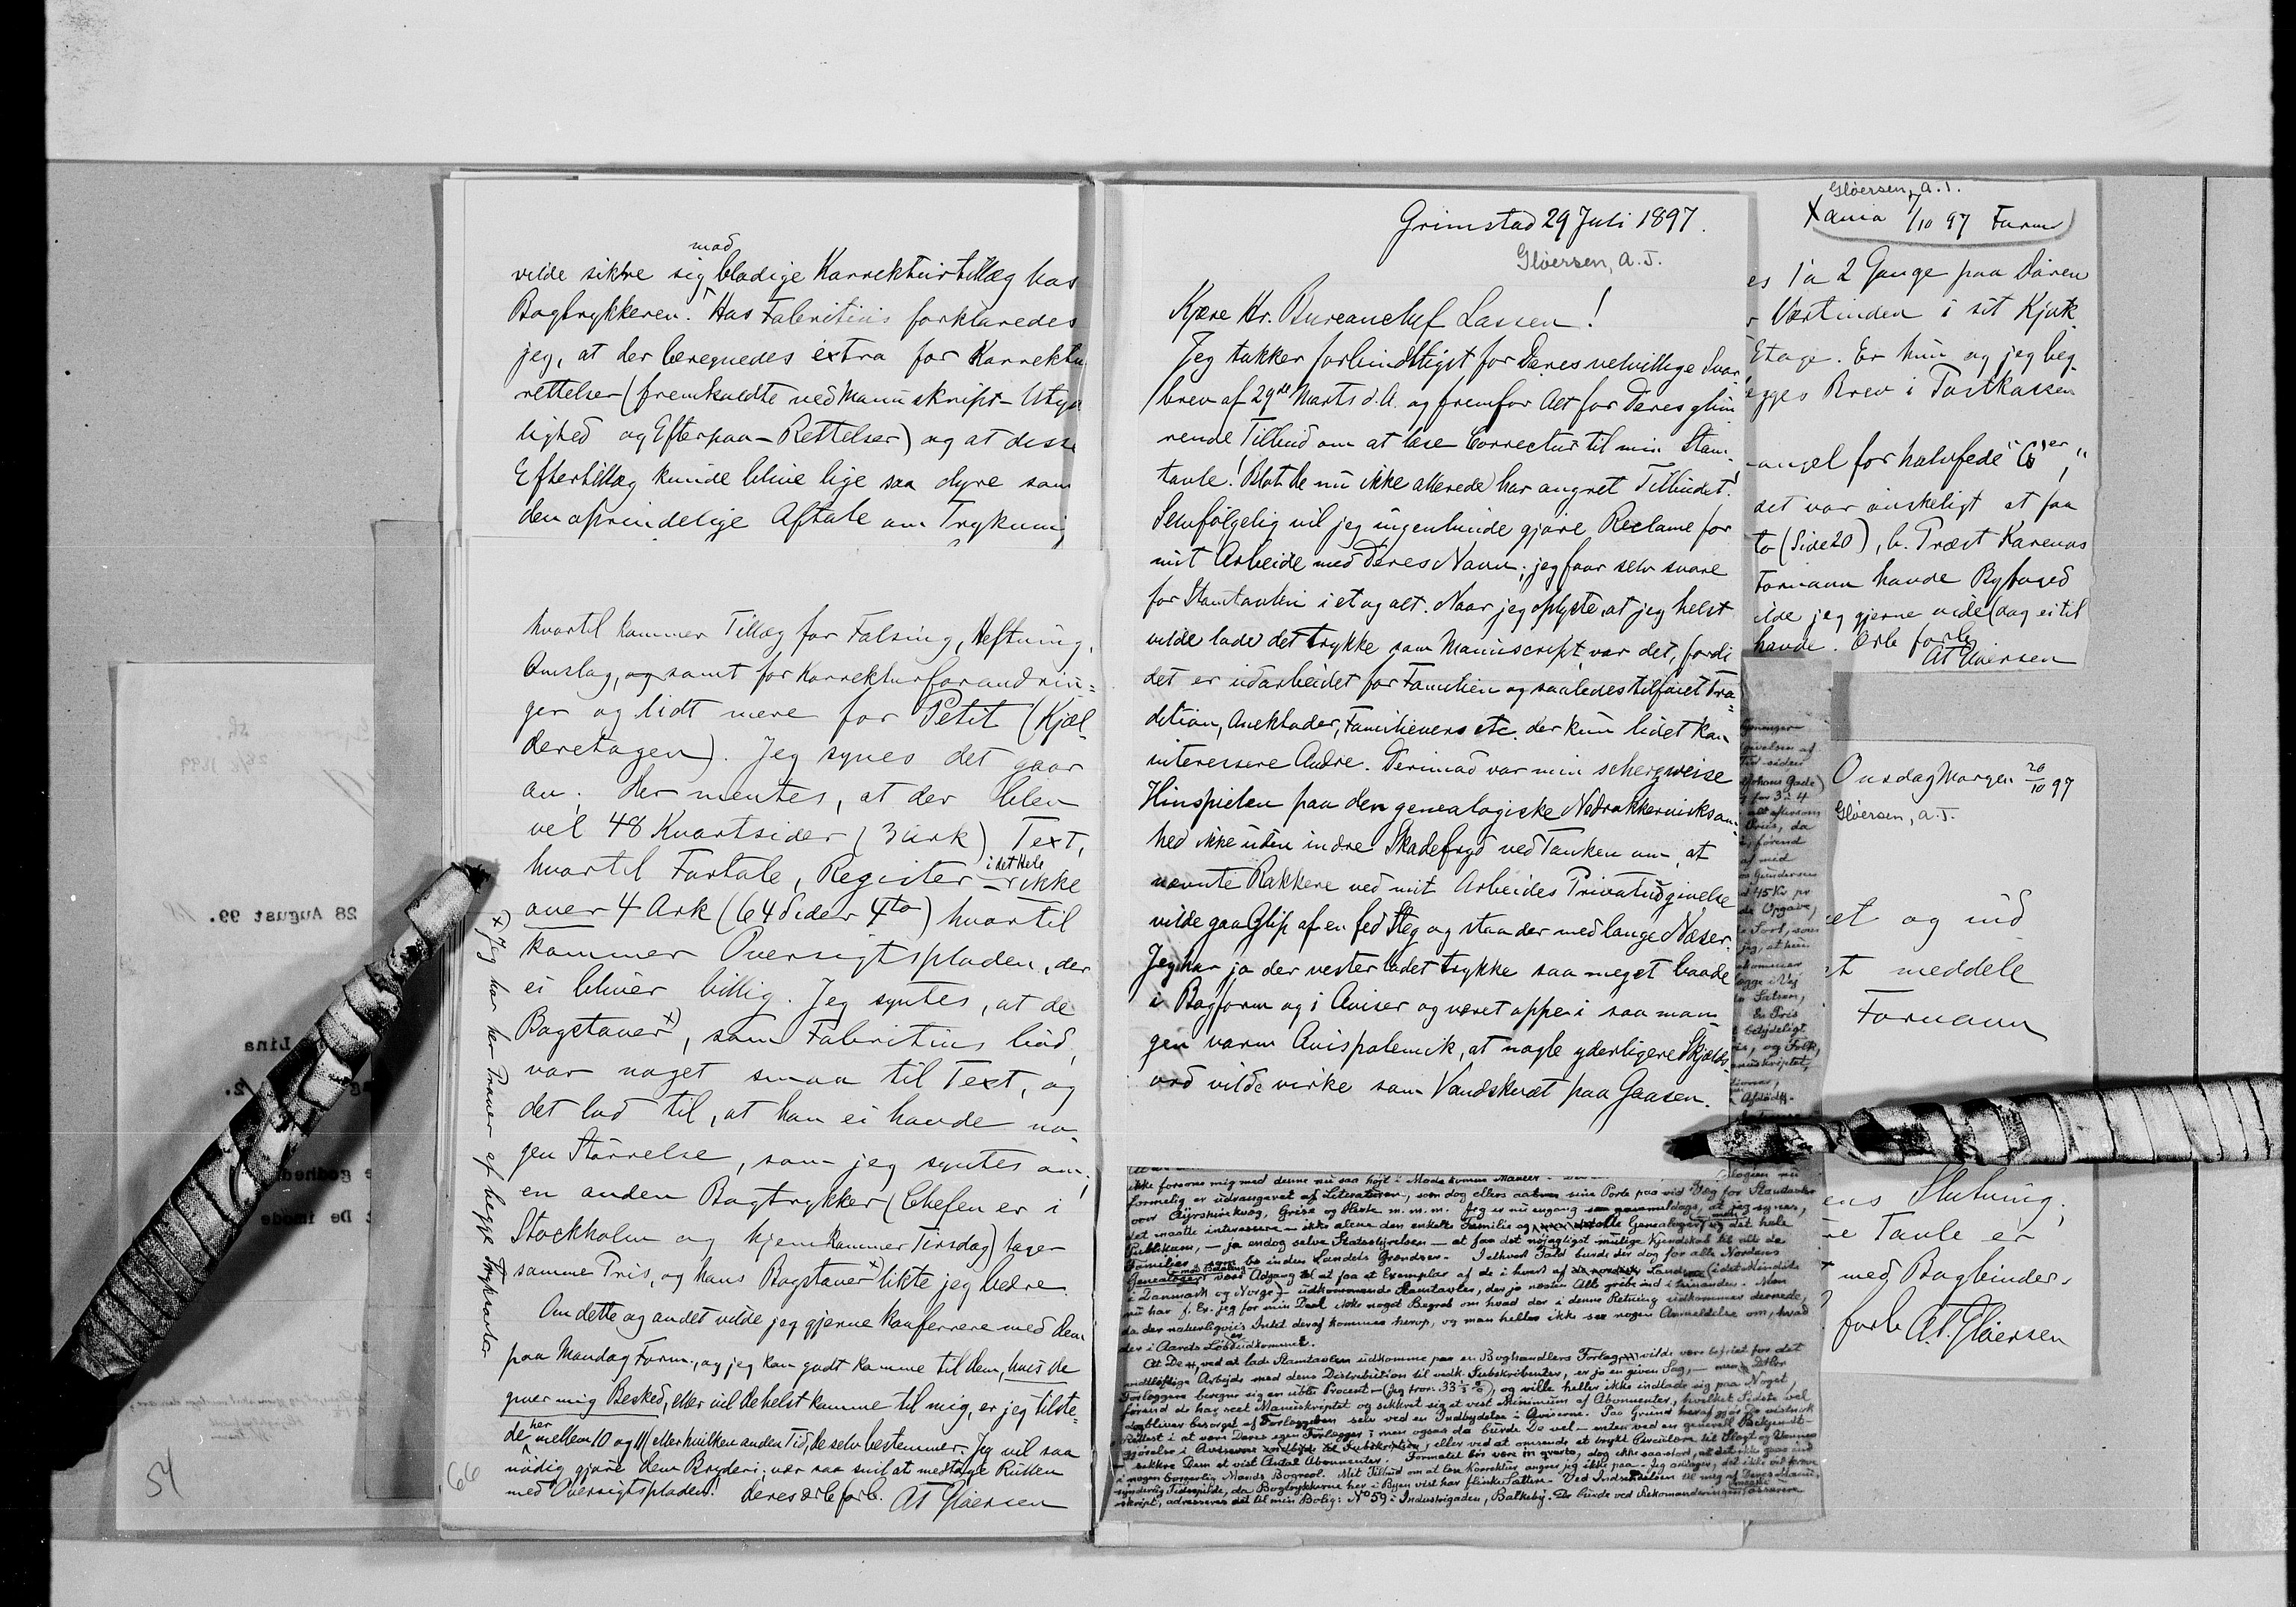 mod
vilde sikkre sig blodige Korrekturtillæg hos
Bogtrykkeren. Hos Fabritius forklaredes
jeg, at der beregnedes extra for Korrektu
rettelser (fremkaldte ved Manuskript-Utyde
lighed og Efterpaa-Rettelser) og at disse
Eftertillæg kunde blive lige saa dyre som
den oprindelige Aftale om Trykning
hvortil kommer Tillæg for Falsing, Heftning,
Omslag, og samt for Korrekturforandrin=
ger og lidt mere for Petit (Kjæl-
deretagen). Jeg synes det gaar
an. Her mentes, at der blev
vel 48 Kvartsider (3 ark) Text,
hvortil Fortale, Register – i det Hele ikke
over 4 Ark (64 Sider 4to) hvortil
kommer Oversigtspladen, der
ei bliver billig. Jeg syntes, at de
Bogstaver x), som Fabritius bød,
var noget smaa til Text, og
det lod til, at han ei havde no-
gen Størrelse, som jeg syntes om;
en anden Bogtrykker (Chefen er i
Stockholm og hjemkommer Tirsdag) tager
samme Pris, og hans Bogstaver x likte jeg bedre.
Om dette og andet vilde jeg gjerne konferrere med Dem
paa Mandag Form., og jeg kan godt komme til Dem, hvis De
giver mig Besked, eller vil De helst komme til mig, er jeg tilste=
de her mellem 10 og 11, eller hvilken anden Tid, De selv bestemmer. Jeg vil saa
nødig gjøre Dem Bryderi; vær saa snil at medtage Rullen
med Oversigtspladen! Deres ærb. forb. At Gløersen
x) Jeg har her Prøver af begge Trykkerier
66
54
28 August 99.
Lina
godhed
De imøde
Grimstad 29 Juli 1897.
Gløersen, A. J.
Kjære Hr. Bureauchef Lassen!
Jeg takker forbindtligst for Deres velvillige Svar-
brev af 29de Marts d. A. og fremfor Alt for Deres glim
rende Tilbud om at læse Correctur til min Stam-
tavle! Blot De nu ikke allerede har angret Tilbudet!
Selvfølgelig vil jeg ingenlunde gjøre Reclame for
mit Arbeide med Deres Navn; jeg faar selv svare
for Stamtavlen i et og alt. Naar jeg oplyste, at jeg helst
vilde lade det trykke som Manuscript, var det, fordi
det er udarbeidet for Familien og saaledes tilføiet Tra=
dition, Anekdoder, Familievers etc. der kun lidet kan
interessere Andre. Derimod var min scherzweise
Hinspielen paa den genealogiske Nedrakkervirksom-
hed ikke uden indre Skadefryd ved Tanken om, at
nævnte Rakkere ved mit Arbeides Privatudgivelse
vilde gaa Glip af en fed Steg og staa der med lange Næser.
Jeg har jo der vester ladet trykke saa meget baade
i Bogform og i Aviser og været oppe i saa man-
gen varm Avispolemik, at nogle yderligere Skjælds-
ord vilde virke som Vandskvæt paa Gaasen.
ikke forsone mig med denne nu saa højt i Mode komne Maneer
formelig er udrangeret af Literaturen, som dog ellers aabner sine Porte paa vid Væg for Stamtavler
over Ayrshirekvæg, Grise og Heste m. m. m. Jeg er nu engang saa gammeldags, at jeg synes,
det maatte interessere – ikke alene den enkelte Familie og alle Genealoger, men og det hele
Publikum, – ja endog selve Statsstyrelsen – at faa det nøjagtigst mulige Kjendskab til alle de
Familier, som bo inden Landets Grændser. I ethvert Fald burde der dog for alle Nordens
Genealoger være Adgang til at faa et Exemplar af de i hvert af de nordiske Lande (i det Mindste
i Danmark og Norge) udkommende Stamtavler, der jo næsten Alle gribe ind i hinanden. Men
nu har f. Ex. jeg for min Deel ikke noget Begreb om hvad der i denne Retning udkommer dernede,
da der naturligviis Intet deraf kommer herop, og man heller ikke ser nogen Anmeldelse om, hvad
der i Aarets Løb er udkommet.
At De, ved at lade Stamtavlen udkomme paa en Boghandlers Forlag, vilde være befriet for det
vidtløftige Arbejde med dens Distribution til vedk. Subskribenter, er jo en given Sag, – men
Forlæggere beregne sig en vis Procent – (jeg tror 33 1/3 %), og ville heller ikke indlade sig paa Noget,
førend de har seet Manuskriptet og sikkret sig et vist Minimum af Abonnenter, hvilket Sidste vel
dog bliver besørget af Forlæggeren selv ved en Indbydelse i Aviserne. Paa Grund heraf gjør De vistnok
Rettest i at være Deres egen Forlægger; men ogsaa da burde De vel – enten ved en generell Bekjendt-
gjørelse i Aviserne, eller ved at omsende et trykt Circulære til Slægt og Venner
– sikkre Dem et vist Antal Abonnenter. Formatet bør være in qvarto, dog ikke saa stort, at det ikke gaar ind
i nogen borgerlig Mands Bogreol. Mit Tilbud om at læse Korrektur angrer jeg ikke paa. Jeg antager, det ikke vil kræve
synderlig Tidsspilde, da Bogtrykkerne her i Byen vist har flinke Sættere. Ved Indsendelsen til mig af Deres Manu-
skript, adresseres det til min Bolig: No 59 i Industrigaden, Balkeby.
Gløersen, A. J.
Xania 1/10 97 Form
es 1 à 2 Gange paa Døren
r Værtinden i sit Kjøk
Etage. Er hun og jeg beg
ægges Brev i Postkassen
angel for halvfede
det var ønskeligt at faa
to (Side 20), h. Præst Karenas
Fornavn havde Byfoged
ilde jeg gjerne vide (dog ei til
havde. Ærb forb
At Gløersen
Onsdag Morgen 20/10 97
Gløersen, A. J.
et og ind
t meddele
Fornavn
ens Slutning,
e Tavle er
med Bogbinder-
forb A. T. Gløersen